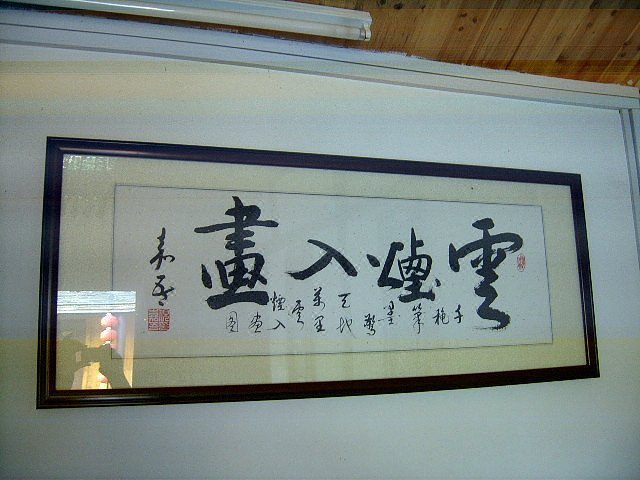 雲煙入畫
千 筆墨驚天地
萬里雲煙入畫圖